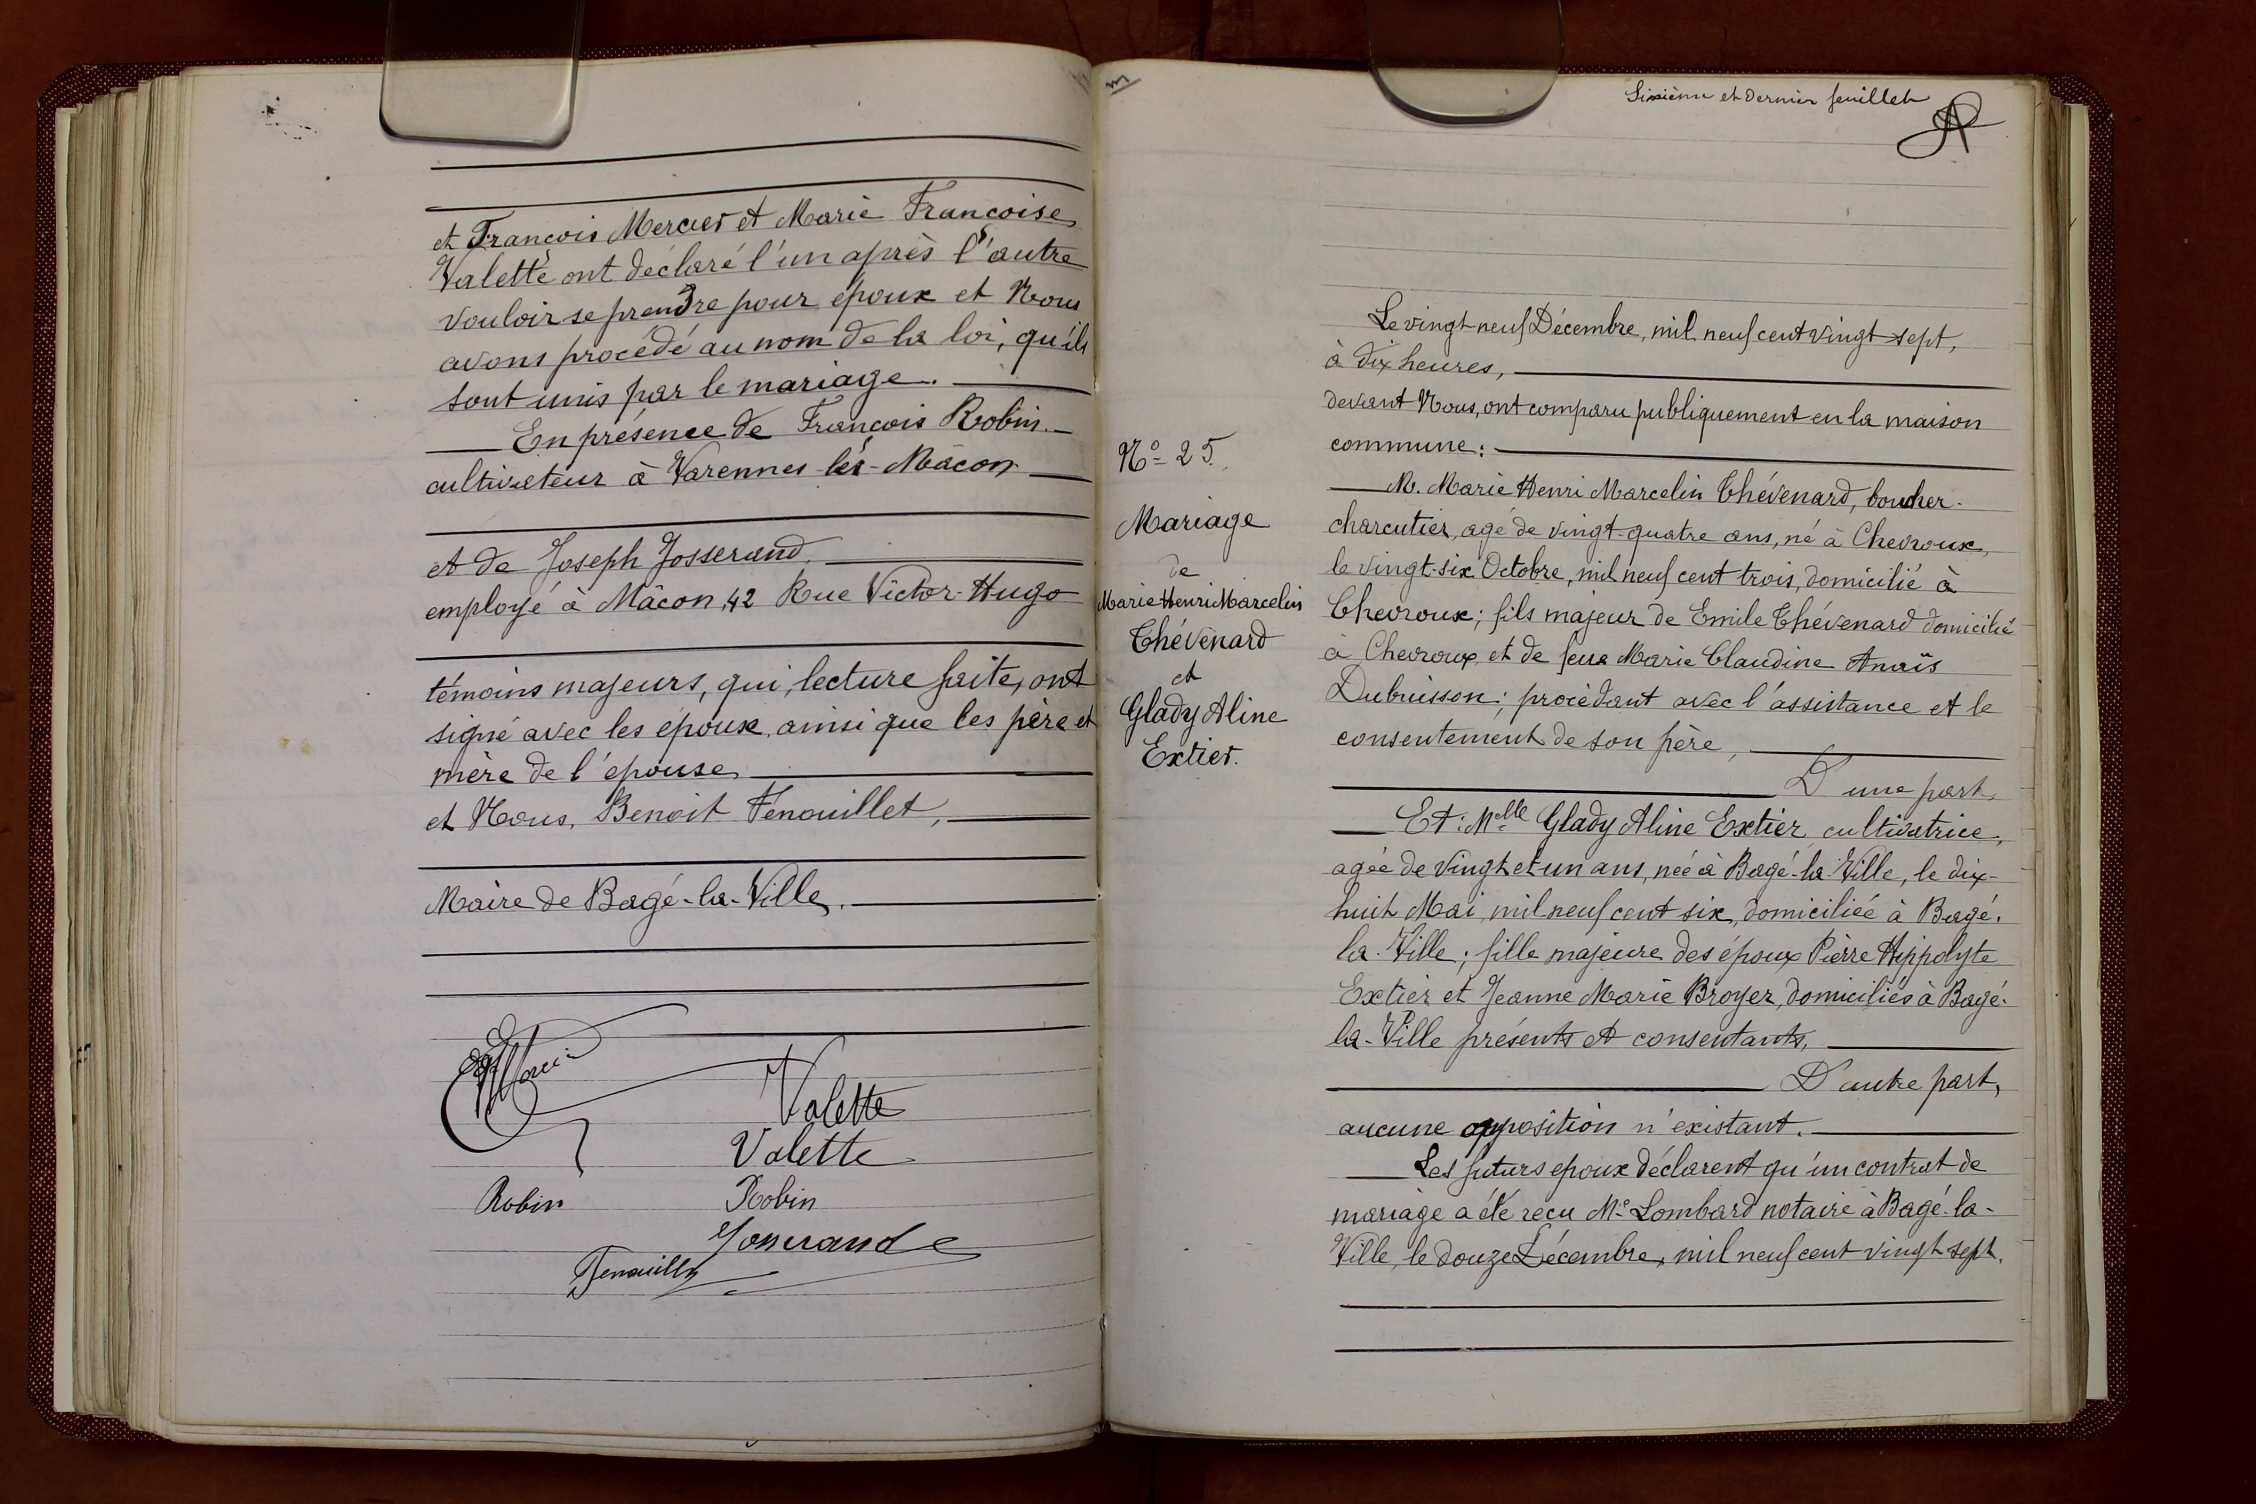 et François Mercier et Marie Françoise
Valette ont déclaré l'un après l'autre
vouloir se prendre pour époux et Nous
avons procédé au nom de la loi, qu'ils
sont unis par le mariage.
En présence de François Robin
cultivateur à Varennes-lès-Mâcon
et de Joseph Josserand,
employé à Mâcon, 42 Rue Victor-Hugo
témoins majeurs, qui, lecture faite, ont
signé avec les époux, ainsi que les père et
mère de l'épouse
et Nous, Benoit Fenouillet,
Maire de Bagé-la-Ville.
Valette
Valette
Robin Robin
Josserand
Fenouillet
Sixième et dernier feuillet
Nº 25.
Mariage
de
Marie Henri Marcelin
Thévenard
et
Glady Aline
Extier.
Le vingt-neuf Décembre, mil neuf cent vingt sept,
à dix heures,
devant Nous, ont comparu publiquement en la maison
commune:
M. Marie Henri Marcelin Thévenard, boucher-
charcutier, agé de vingt-quatre ans, né à Chevroux,
le vingt-six Octobre, mil neuf cent trois, domicilié à
Chevroux; fils majeur de Emile Thévenard domicilié
à Chevroux, et de feue Marie Claudine Anaïs
Dubuisson; procédant avec l'assistance et le
consentement de son père,
D'une part,
Et: Melle Glady Aline Extier, cultivatrice,
agée de vingt et un ans, née à Bagé-la-Ville, le dix-
huit Mai, mil neuf cent six, domiciliée à Bagé-
la-Ville; fille majeure des époux Pierre Hippolyte
Extier et Jeanne Marie Broyer, domiciliés à Bagé-
la-Ville présents et consentants,
D'autre part,
aucune opposition n'existant.
Les futurs epoux déclarent qu'un contrat de
mariage a été reçu Me Lombard notaire à Bagé-la-
Ville, le douze Décembre, mil neuf cent vingt sept.